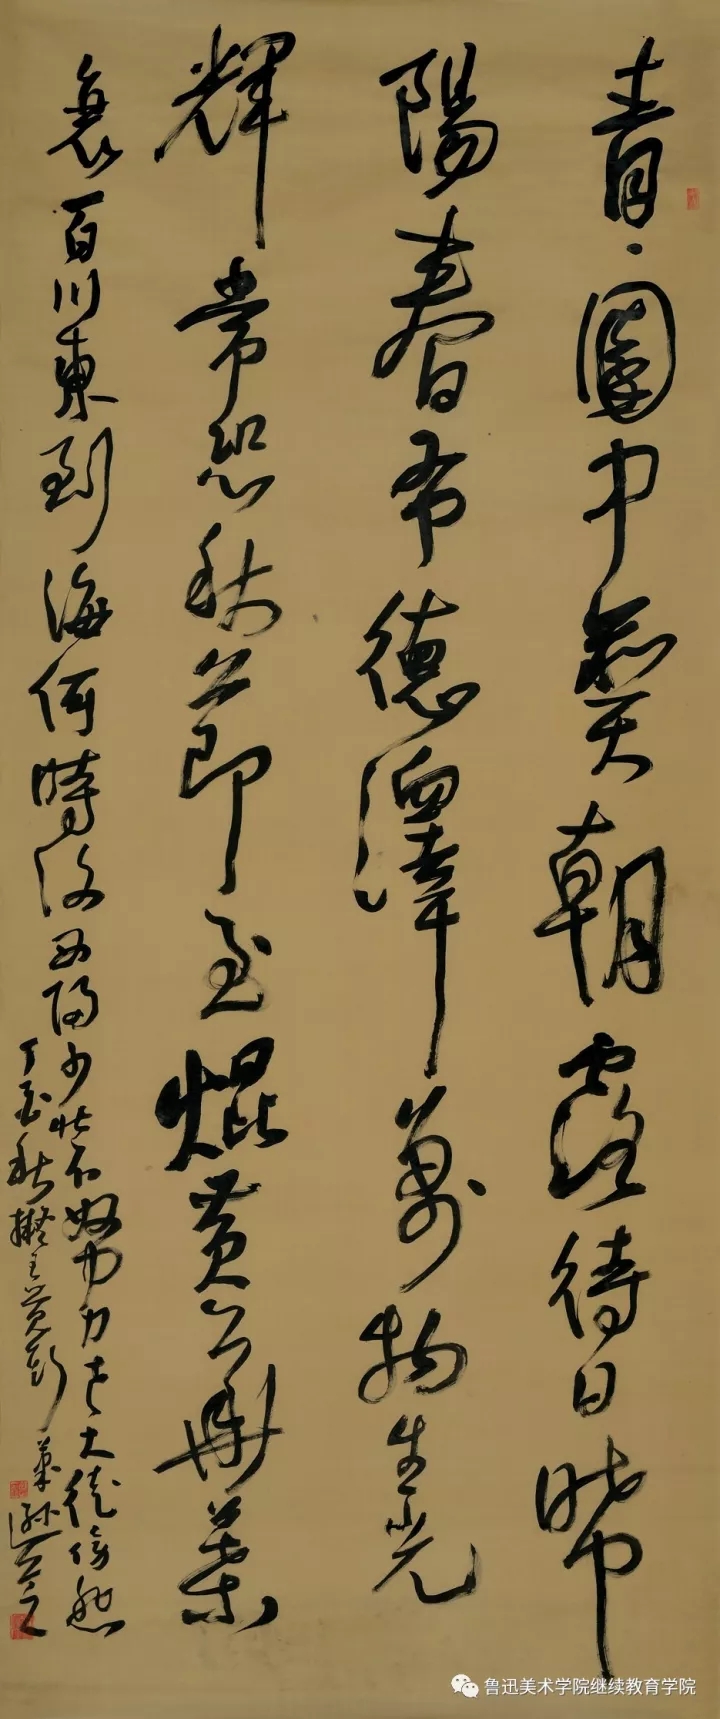 青々園中葵朝露待日晞
陽春布德澤萬物生光
輝常恐秋節至焜黃華葉
衰百川東到海何時復西歸少壯不努力老大徒傷悲
丁酉秋
鲁迅美术学院继续教育学院